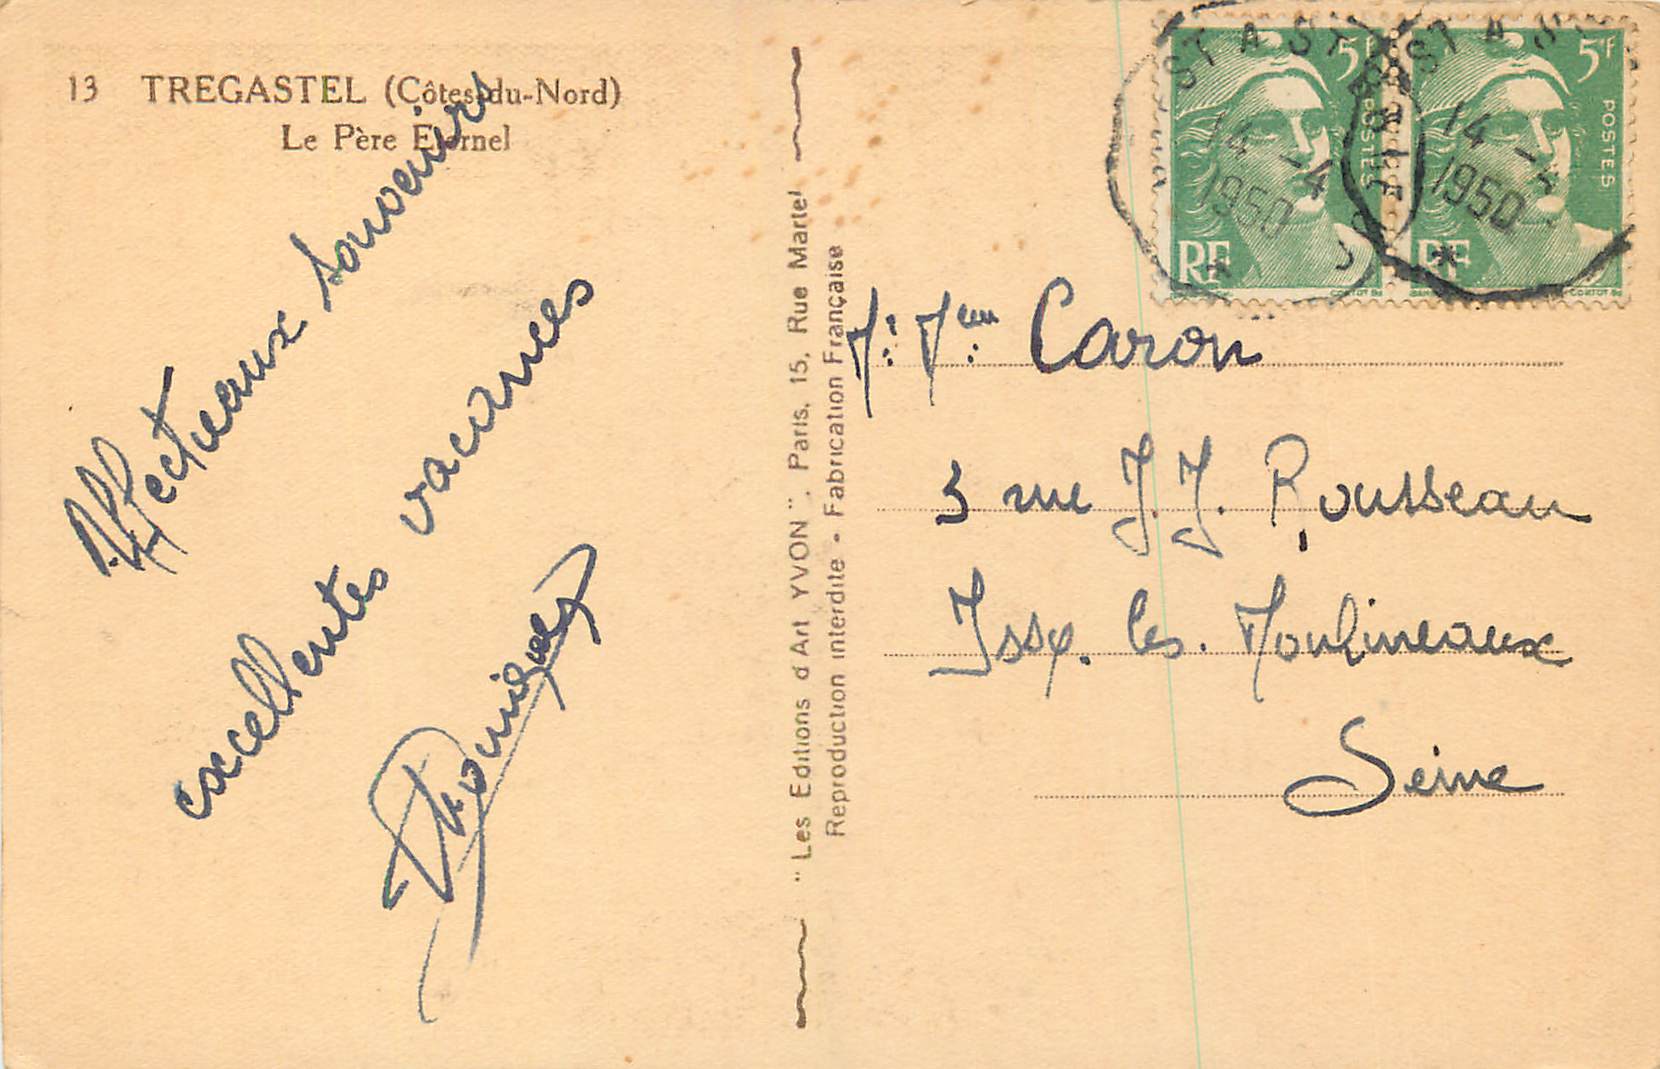 13 TREGASTEL (Côtes-du-Nord)
Le Père Eternel
Affectueaux souvenirs
excellentes vacances
" Les Editions d'Art YVON ", Paris, 15, Rue Martel
Reproduction interdite - Fabrication Française
5F
POSTES
RF
14 -4
1950
5F
POSTES
RF
CORTOT
14 -
1950
Caron
5 rue J.J. Rousseau
Issy. les. Moulineaux
Seine